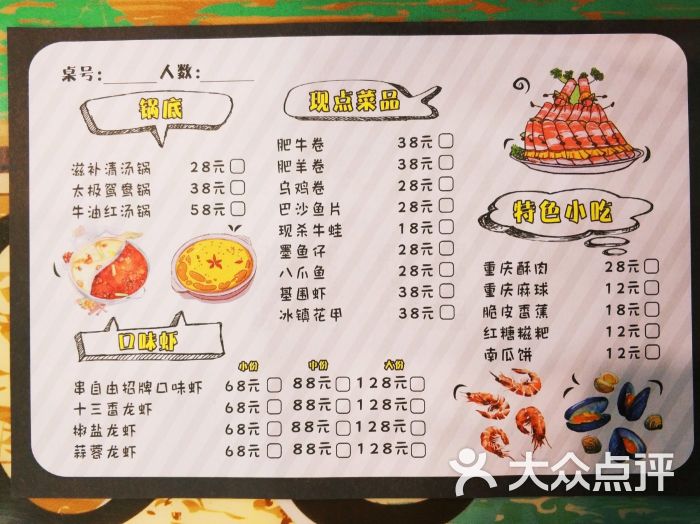 桌号: 人数:
锅底
滋补清汤锅 28元
太极鸳鸯锅 38元
牛油红汤锅 58元
口味虾
小份 中份 大份
串自由招牌口味虾 68元 88元 128元
十三香龙虾 68元 88元 128元
椒盐龙虾 68元 88元 128元
蒜蓉龙虾 68元 88元 128元
现点菜品
肥牛卷 38元
肥羊卷 38元
乌鸡卷 28元
巴沙鱼片 28元
现杀牛蛙 18元
墨鱼仔 28元
八爪鱼 28元
基围虾 38元
冰镇花甲 38元
特色小吃
重庆酥肉 28元
重庆麻球 12元
脆皮香蕉 18元
红糖糍粑 12元
南瓜饼 12元
大众点评